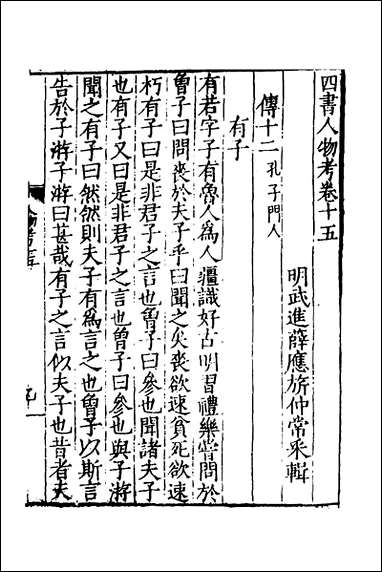 四書人物考卷十五
明武進薛應旂仲常采輯
傳十二 孔子門人
有子
有若字子有魯人為人彊識好古明習禮樂嘗問於
曾子曰問喪於夫子乎曰聞之矣喪欲速貧死欲速
朽有子曰是非君子之言也曾子曰參也聞諸夫子
也有子又曰是非君子之言也曾子曰參也與子游
聞之有子曰然然則夫子有為言之也曾子以斯言
告於子游子游曰甚哉有子之言似夫子也昔者夫